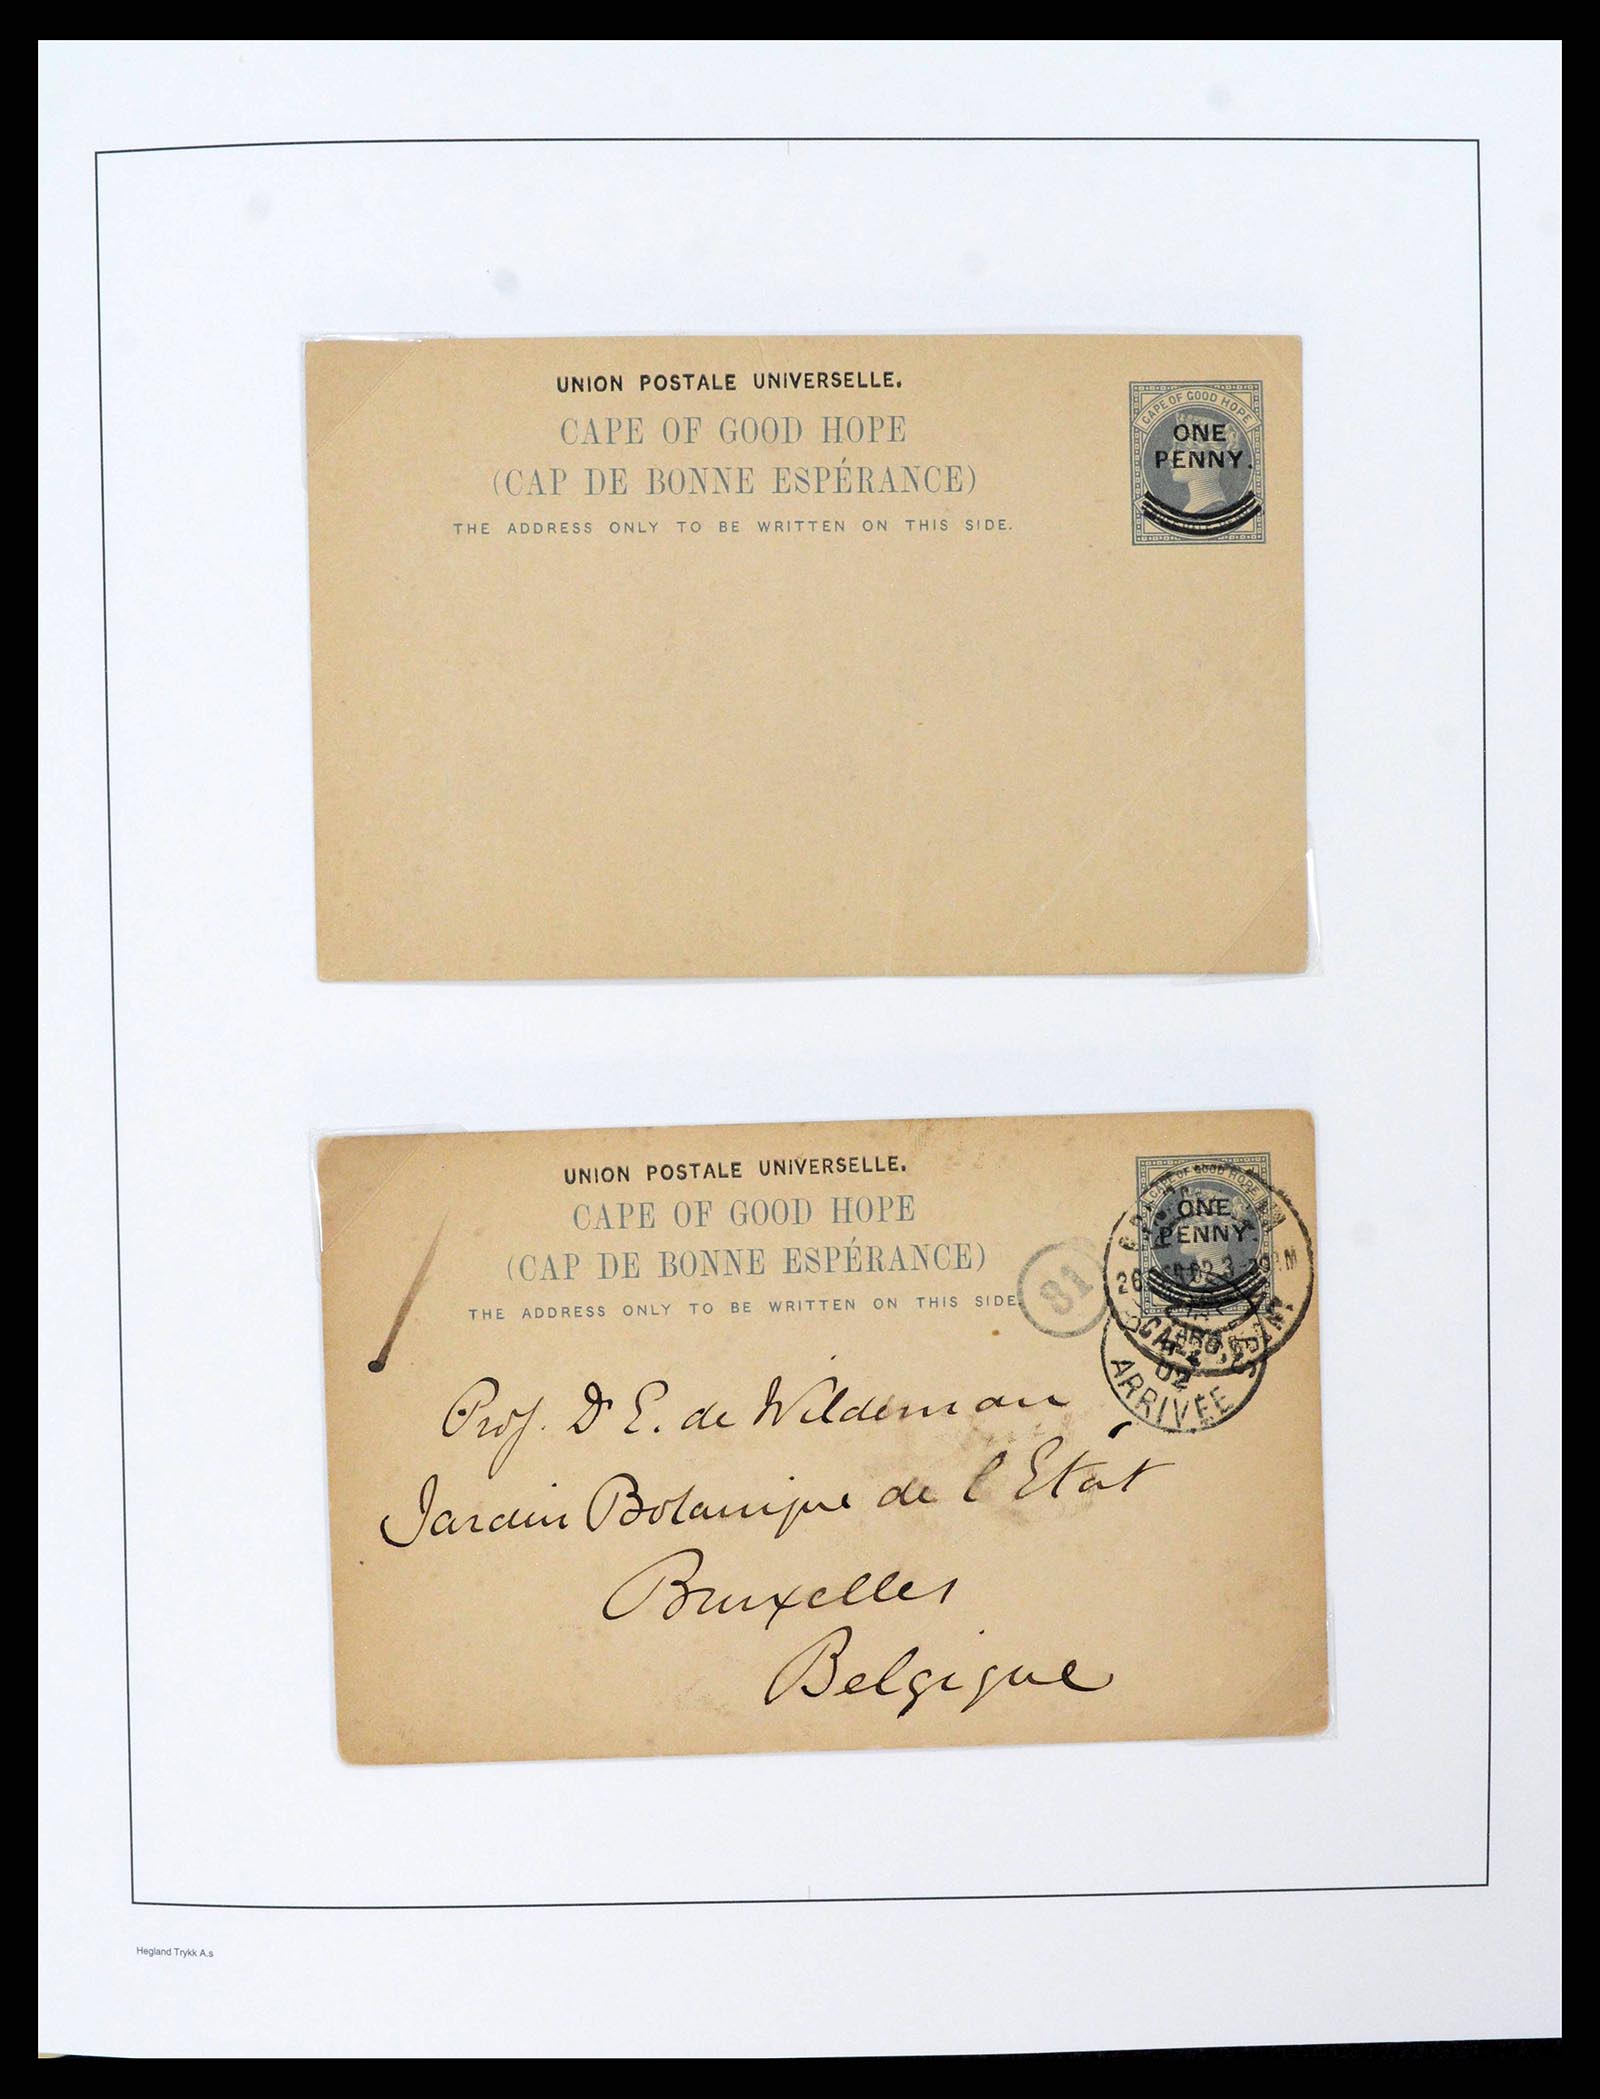 UNION POSTALE UNIVERSELLE.
CAPE OF GOOD HOPE
(CAP DE BONNE ESPÉRANCE)
THE ADDRESS ONLY TO BE WRITTEN ON THIS SIDE.
CAPE OF GOOD HOPE
ONE
PENNY.
UNION POSTALE UNIVERSELLE.
CAPE OF GOOD HOPE
(CAP DE BONNE ESPÉRANCE)
THE ADDRESS ONLY TO BE WRITTEN ON THIS SIDE.
CAPE OF GOOD HOPE
ONE
PENNY.
81
26
02
ARRIVÉE
Prof. Dr E. de Wildeman
Jardin Botanique de l'Etat
Bruxelles
Belgique
Hegland Trykk A.s